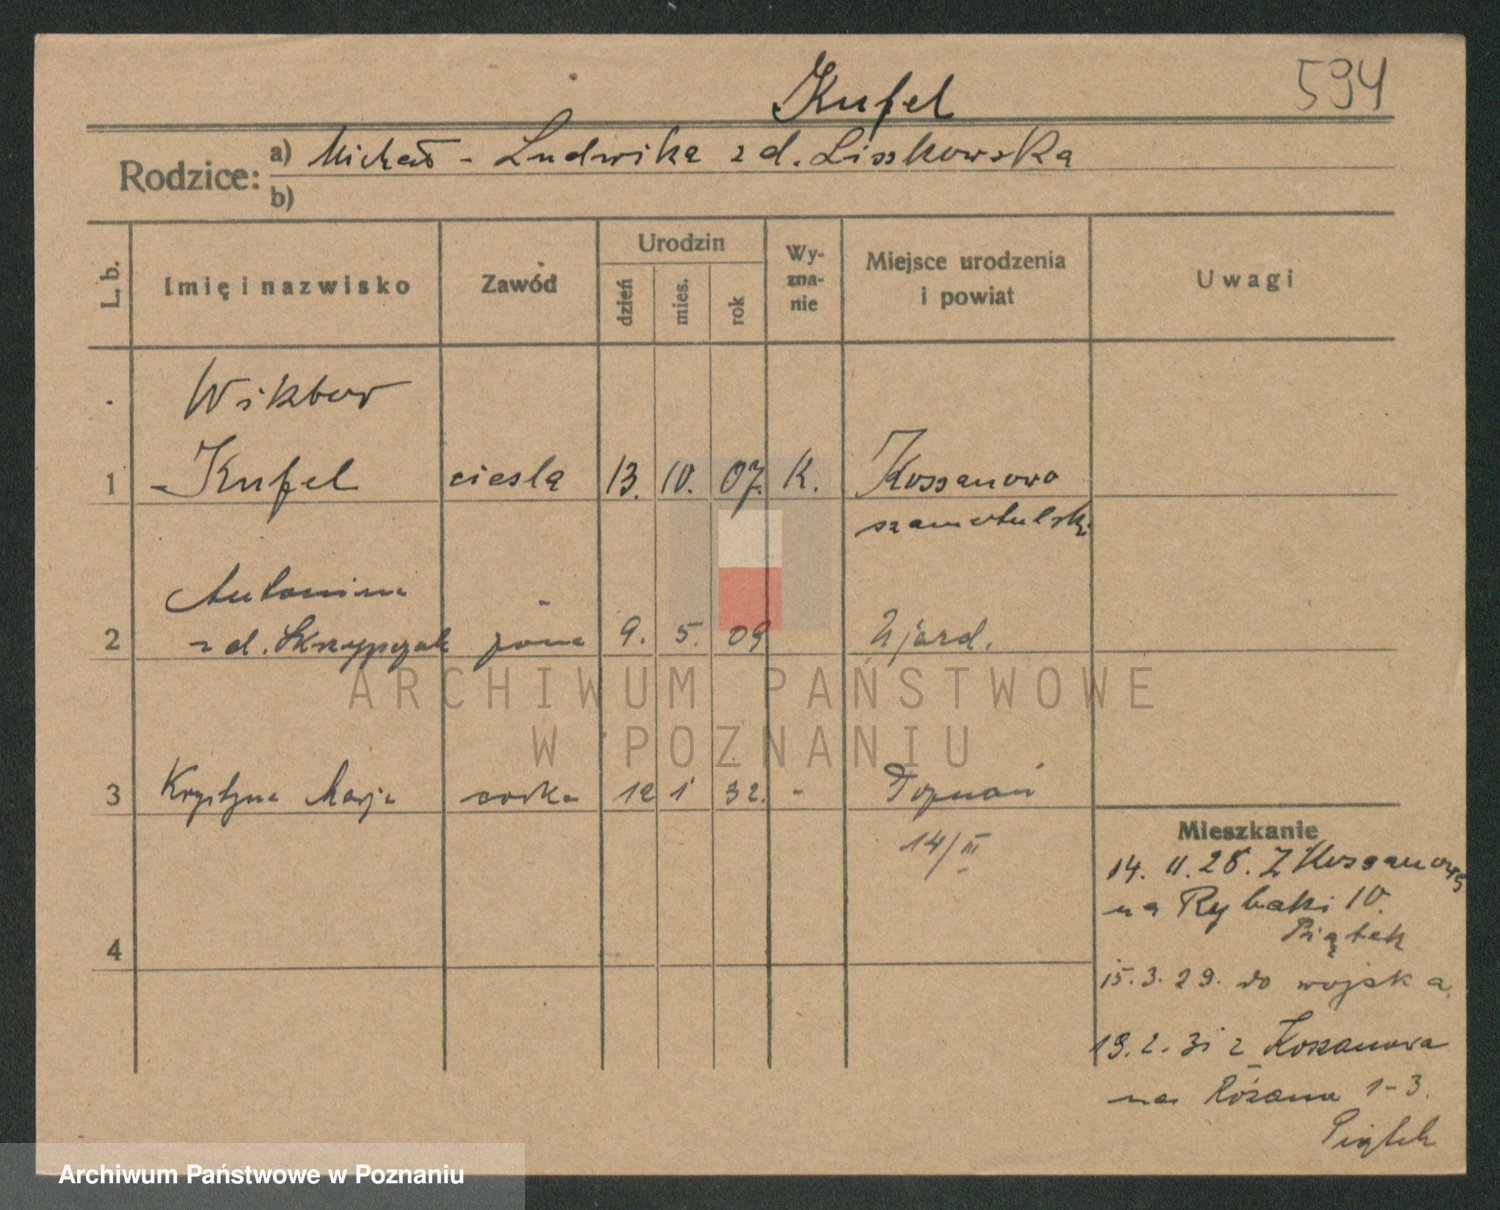 Kufel 594
Rodzice: a) Michał - Ludwika z d. Liszkowska
b)
L. b. Imię i nazwisko Zawód Urodzin dzień mies. rok Wyznanie Miejsce urodzenia i powiat Uwagi
Wiktor
1 Kufel ciesla 13. 10. 07. K. Kossanowo
szamotulski
Antonina
2 z d. Skrzypczak żona 9. 5. 09 Ujazd.
ARCHIWUM PAŃSTWOWE
W POZNANIU
3 Krystyna Marja córka 12 1 32. - Poznań
14/III
4
Mieszkanie
14. 11. 28. Z Kossanowa
na Rybaki 10.
Piątek
15. 3. 29. do wojska.
19. 2. 31 z Kossanowa
na Różana 1-3.
Piątek
Archiwum Państwowe w Poznaniu